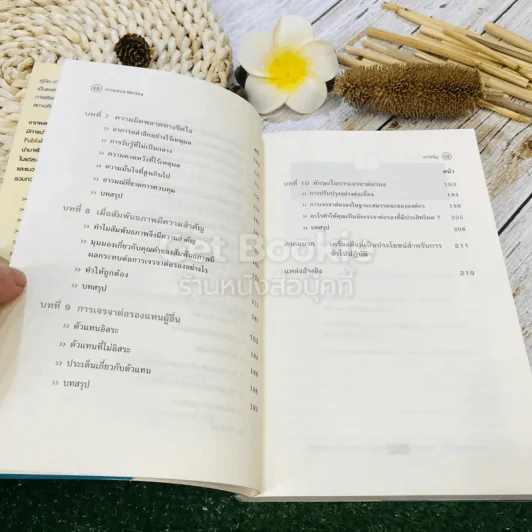 การเจรจาต่อรอง
บทที่ 7 ความผิดพลาดทางจิตใจ
›› อาการกล้าลึกอย่างไร้เหตุผล
›› การรับรู้ที่ไม่เป็นกลาง
›› ความคาดหวังที่ไร้เหตุผล
›› ความมั่นใจที่สูงเกินไป
›› อารมณ์ที่ขาดการควบคุม
›› บทสรุป
บทที่ 8 เมื่อสัมพันธภาพมีความสำคัญ
›› ทำไมสัมพันธภาพจึงมีความสำคัญ
›› มุมมองเกี่ยวกับคุณค่าของสัมพันธภาพมี
ผลกระทบต่อการเจรจาต่อรองอย่างไร
›› ทำให้ถูกต้อง
›› บทสรุป
บทที่ 9 การเจรจาต่อรองแทนผู้อื่น
›› ตัวแทนอิสระ
›› ตัวแทนที่ไม่อิสระ
›› ประเด็นเกี่ยวกับตัวแทน
›› บทสรุป
สารบัญ
หน้า
บทที่ 10 ทักษะในการเจรจาต่อรอง 193
›› การปรับปรุงอย่างต่อเนื่อง 194
›› การเจรจาต่อรองในฐานะสมรรถนะขององค์กร 198
›› อะไรทำให้คุณเป็นนักเจรจาต่อรองที่มีประสิทธิผล ? 205
›› บทสรุป 208
ภาคผนวก เครื่องมือที่เป็นประโยชน์สำหรับการ 211
นำไปปฏิบัติ
แหล่งอ้างอิง 219
Get Bookie
ร้านหนังสือบุคกี้